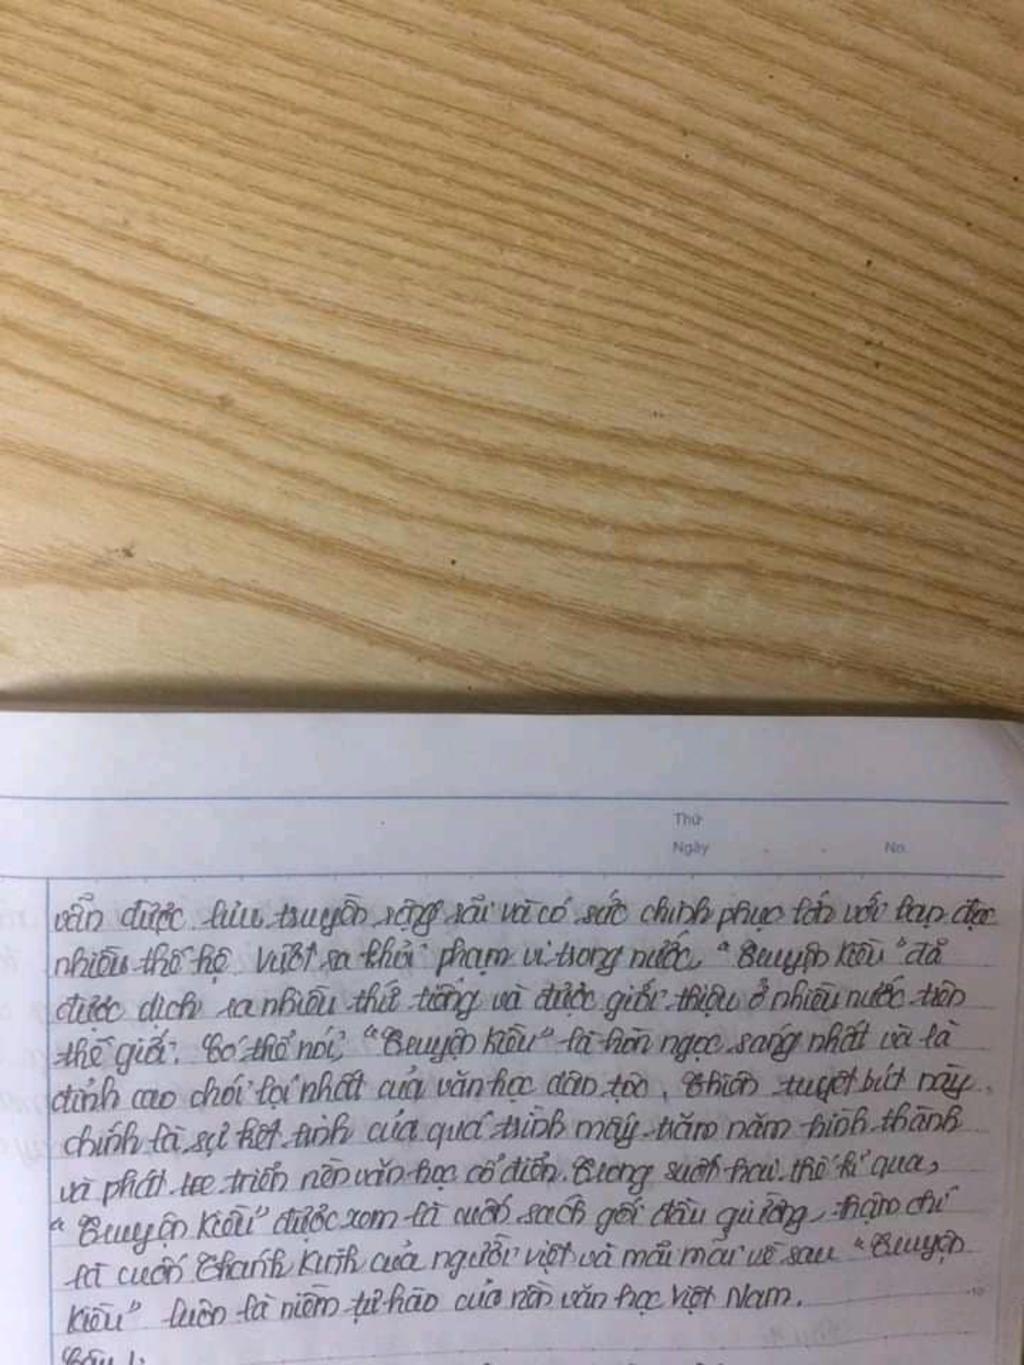 Thứ
Ngày . . No.
vẫn được lưu truyền rộng rãi và có sức chinh phục lớn với bạn đọc
nhiều thế hệ. Vượt ra khỏi phạm vi trong nước, "Truyện Kiều" đã
được dịch ra nhiều thứ tiếng và được giới thiệu ở nhiều nước trên
thế giới. Có thể nói, "Truyện Kiều" là hòn ngọc sáng nhất và là
đỉnh cao chói lọi nhất của văn học dân tộc. Thiên tuyệt bút này
chính là sự kết tinh của quá trình mấy trăm năm hình thành
và phát triển nền văn học cổ điển. Trong suốt hai thế kỉ qua,
"Truyện Kiều" được xem là cuốn sách gối đầu giường, thậm chí
là cuốn Thánh Kinh của người việt và mãi mãi về sau "Truyện
Kiều" luôn là niềm tự hào của nền văn học Việt Nam.
10
Câu 1: